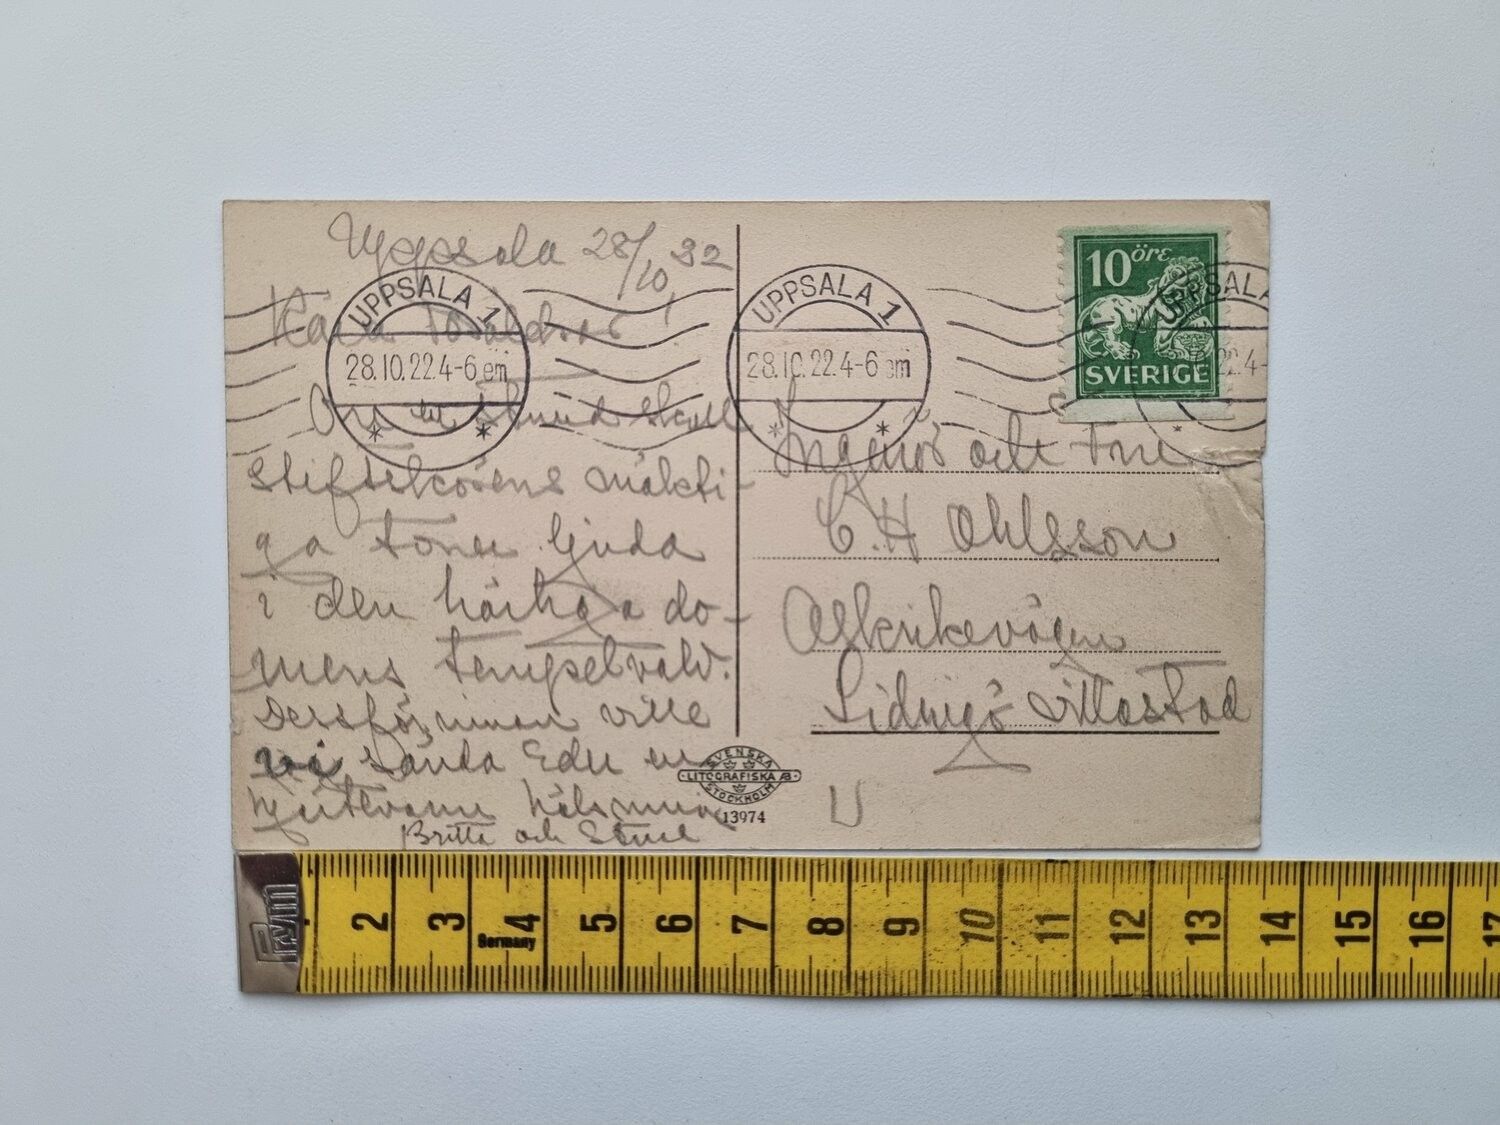 Uppsala 28/10 22
Kära Föräldrar!
Om en stund skall
stiftskörens mäkti-
ga toner ljuda
i den härliga do-
mens tempelvalv.
Dessförinnan ville
vi sända Eder en
hjärtevarm hälsning
Britta och Sture
UPPSALA 1
28.10.22.4-6 em
UPPSALA 1
28.10.22.4-6 em
UPPSALA
22.4-
10 öre
SVERIGE
Ingeniör och Fru
C.H Ohlsson
Askrikevägen
Lidingö Villastad
SVENSKA
LITOGRAFISKA AB.
STOCKHOLM
13974
U
Prym
Germany
1 2 3 4 5 6 7 8 9 10 11 12 13 14 15 16 17